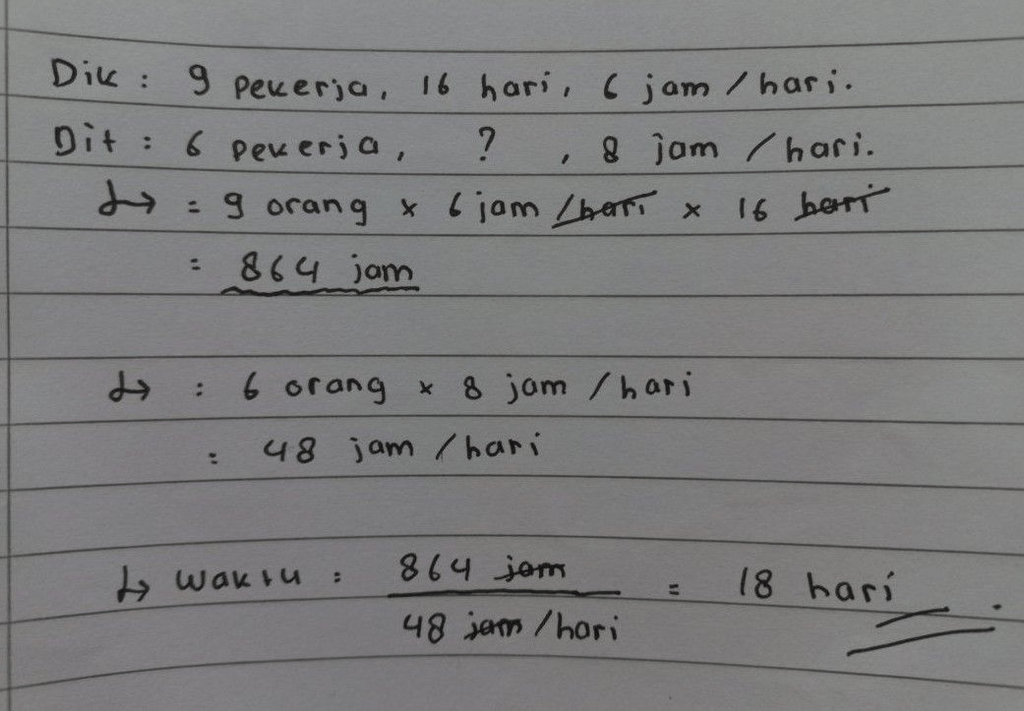 Dik : 9 pekerja, 16 hari, 6 jam / hari.
Dit : 6 pekerja, ? , 8 jam / hari.
↳ = 9 orang × 6 jam /hari × 16 hari
= 864 jam
↳ : 6 orang × 8 jam / hari
= 48 jam / hari
↳ waktu : 864 jam / 48 jam /hari = 18 hari.